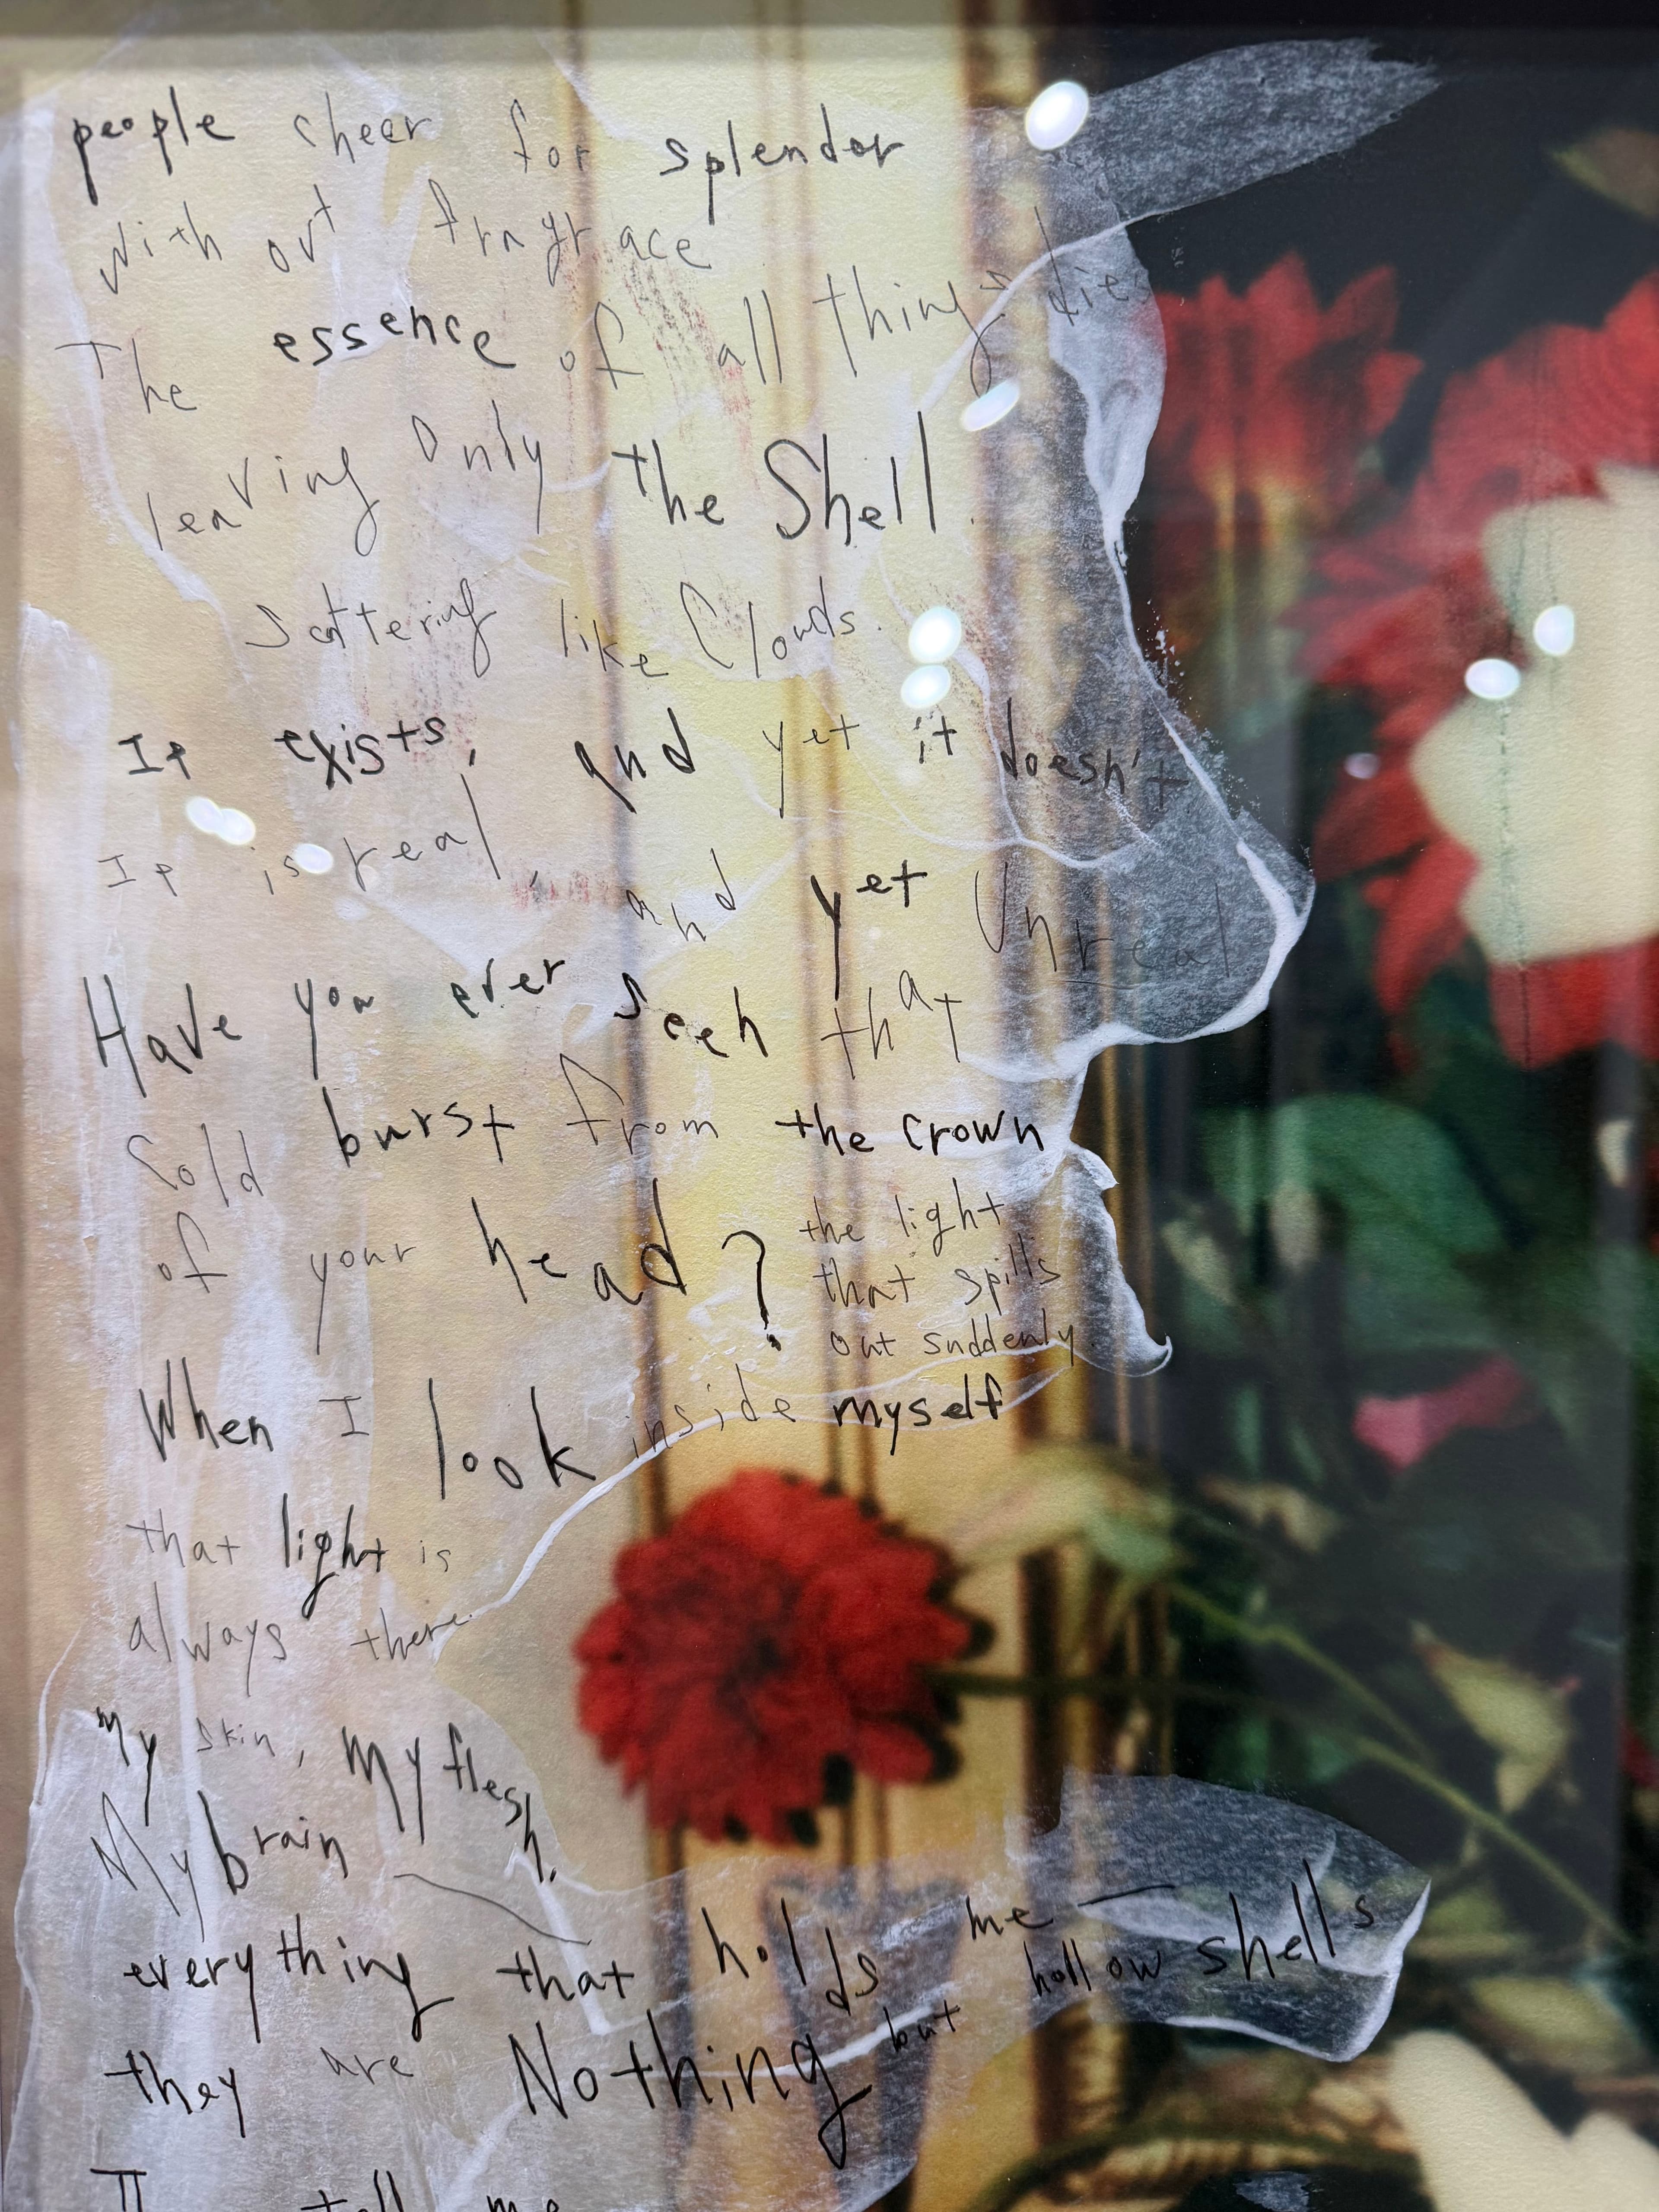 people cheer for splendor
with out fragrace
The essence of all things dies
leaving only the Shell.
Scattering like Clouds.
It exists, and yet it doesn't
It is real, and yet Unreal
Have you ever seen that
Gold burst from the crown
of your head?
the light
that spills
out suddenly.
When I look inside myself
that light is
always there.
My skin, My flesh.
My brain —
everything that holds me —
they are Nothing but hollow shells
tell me